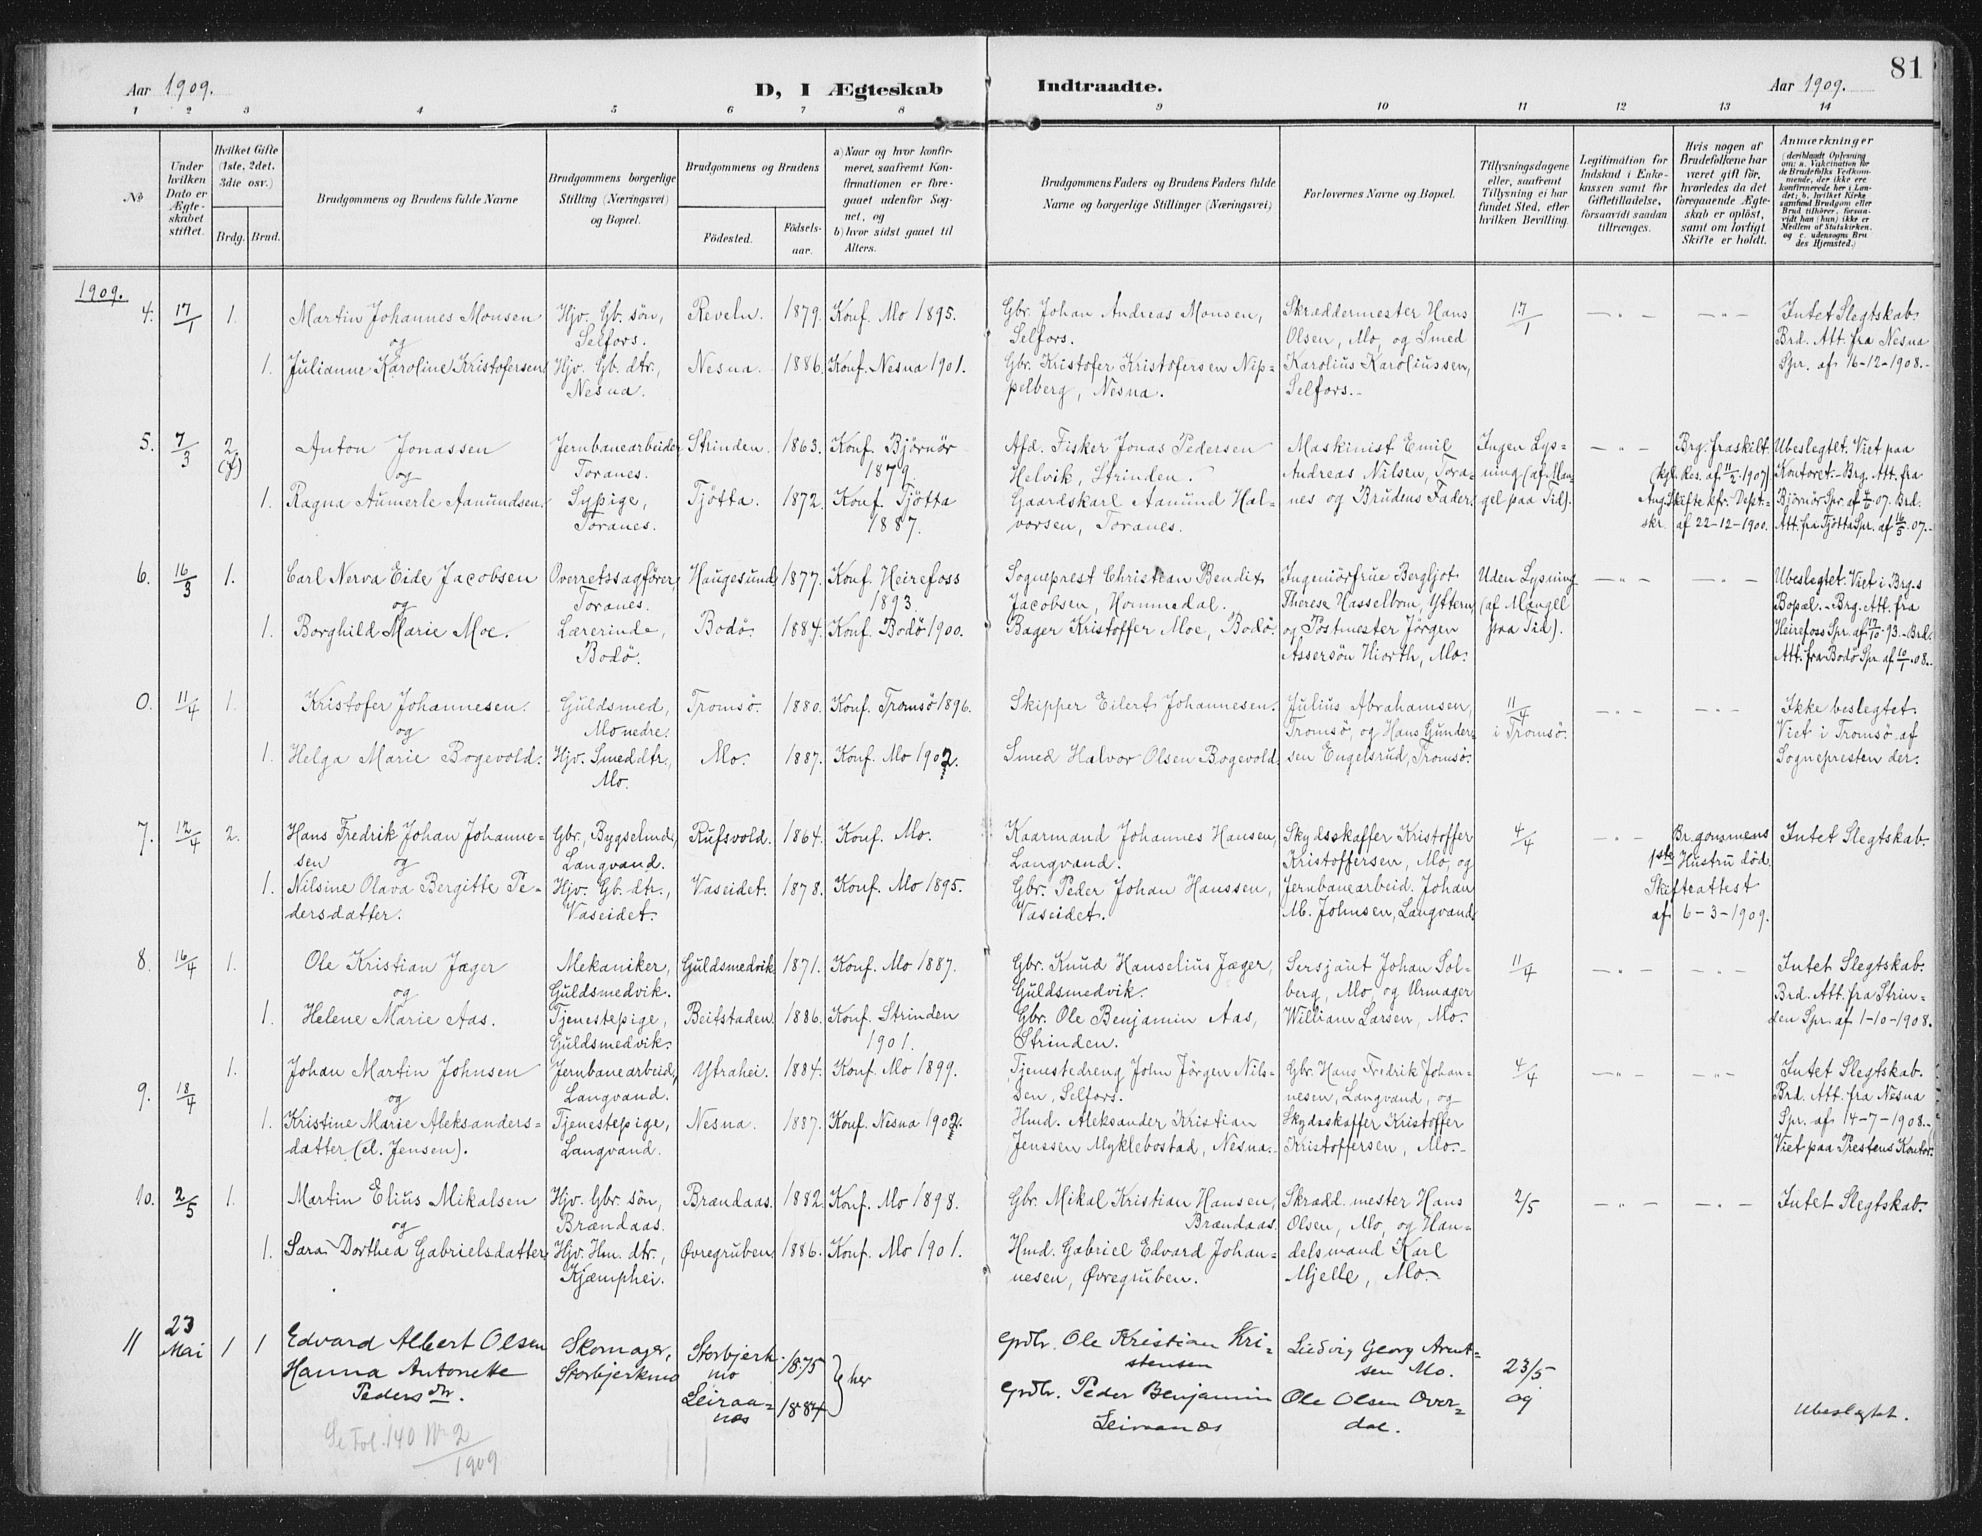 81
Aar 1909. D, I Ægteskab Indtraadte. Aar 1909.
1 2 3 4 5 6 7 8 9 10 11 12 13 14
№
Under hvilken Dato er Ægteskabet stiftet.
Hvilket Gifte (1ste, 2det, 3die osv.)
Brdg. Brud.
Brudgommens og Brudens fulde Navne
Brudgommens borgerlige Stilling (Næringsvei) og Bopæl.
Brudgommens og Brudens
Fødested. Fødselsaar.
a) Naar og hvor konfirmeret, saafremt Konfirmationen er foregaaet udenfor Sognet, og
b) hvor sidst gaaet til Alters.
Brudgommens Faders og Brudens Faders fulde Navne og borgerlige Stillinger (Næringsvei)
Forlovernes Navne og Bopæl.
Tillysningsdagene eller, saafremt Tillysning ei har fundet Sted, efter hvilken Bevilling.
Legitimation for Indskud i Enkekassen samt for Giftetilladelse, forsaavidt saadan tiltrænges.
Hvis nogen af Brudefolkene har været gift før, hvorledes da det foregaaende Ægteskab er opløst, samt om lovligt Skifte er holdt.
Anmærkninger
(deriblandt Oplysning om: a. Vakcination for de Brudefolks Vedkommende, der ikke ere konfirmerede her i Landet; b. hvilket Kirkesamfund Brudgom eller Brud tilhører, forsaavidt han (hun) ikke er Medlem af Statskirken, og c. udensogns Brudes Hjemsted.)
1909.
4. 17/1 1. Martin Johannes Monsen Hjv. Gb. søn, Reveln. 1879. Konf. Mo 1895. Gbr. Johan Andreas Monsen, Skræddermester Hans 17/1 — „ — — „ — Intet Slegtskab.
og Selfors. Selfors. Olsen, Mo, og Smed Brd. Att. fra Nesna
1. Julianne Karoline Kristofersen Hjv. Gb. dtr., Nesna. 1886. Konf. Nesna 1901. Gbr. Kristofer Kristofersen Nip= Karolius Karoliussen, Spr. af 16-12-1908.-
Nesna. pelberg, Nesna. Selfors.-
5. 7/3 2. (f) Anton Jonassen Jernbanearbeider Strinden. 1863. Konf. Bjørnør Afd. Fisker Jonas Pedersen Maskinist Emil Ingen Lys= — „ — Brg. fraskilt. Ubeslegtet. Viet paa
og Toranes. 1879. Helvik, Strinden. Andreas Nilsen, Tora= ning (af Man= (kgl. Res. af 11/2-1907) Kontoret.- Brg. Att. fra
1. Ragna Aumerle Aamundsen. Sypige, Tjøtta. 1872. Konf. Tjøtta Gaardskarl Aamund Hal= nes og Brudens Fader. gel paa Tid). Ang. Skifte kfr. Dept= Bjørnør Spr. af 07. Brd.
Toranes. 1887. vorsen, Toranes. skr. af 22-12-1900. Att. fra Tjøtta Spr. af 16/5 07.-
6. 16/3 1. Carl Nerva Eide Jacobsen Overretssagfører, Haugesund 1877. Konf. Heirefoss Sogneprest Christian Bendix Ingeniørfrue Bergljot Uden Lysning — „ — — „ — Ubeslegtet. Viet i Brg.s
og Toranes. 1893. Jacobsen, Hommedal. Therese Hasselbom, Yttern, (af Mangel Bopæl.- Brg. Att. fra
1. Borghild Marie Moe. Lærerinde, Bodø. 1884. Konf. Bodø 1900. Bager Kristoffer Moe, Bodø. og Postmester Jørgen paa Tid). Heirefoss Spr. af 17/10 93.- Brd.
Bodø. Assersøn Hiorth, Mo. Att. fra Bodø Spr. af 10/1 08.-
0. 11/4 1. Kristofer Johannesen. Guldsmed, Tromsø. 1880. Konf. Tromsø 1896. Skipper Eilert Johannesen. Julius Abrahamsen, 11/4 — „ — — „ — Ikke beslegtet.
og Monedre. Tromsø, og Hans Gunder= i Tromsø. Viet i Tromsø af
1. Helga Marie Bogevold. Hjv. Smeddtr., Mo. 1887. Konf. Mo 1902. Smed Halvor Olsen Bogevold. sen Engelsrud, Tromsø. Sognepresten der.
Mo.
7. 12/4 2. Hans Fredrik Johan Johanne= Gbr., Bygselmd, Rufsvold. 1864. Konf. Mo. Kaarmand Johannes Hansen, Skydsskaffer Kristoffer 4/4 — „ — Br.gommens Intet Slegtskab.
sen og Langvand. Langvand. Kristoffersen, Mo, og 1ste Hustru død.
1. Nilsine Olava Bergitte Pe= Hjv. Gb. dtr., Vaseidet. 1878. Konf. Mo 1895. Gbr. Peder Johan Hanssen, Jernbanearbeid. Johan Skifteattest
dersdatter. Vaseidet. Vaseidet. M. Johnsen, Langvand. af 6-3-1909.
8. 16/4 1. Ole Kristian Jæger Mekaniker, Guldsmedvik. 1871. Konf. Mo 1887. Gbr. Knud Hanselius Jæger, Sersjant Johan Sol= 11/4 — „ — — „ — Intet Slegtskab.
og Guldsmedvik. Guldsmedvik. berg, Mo, og Urmager Brd. Att. fra Strin=
1. Helene Marie Aas. Tjenestepige, Beitstaden. 1886. Konf. Strinden Gbr. Ole Benjamin Aas, William Larsen, Mo. den Spr. af 1-10-1908.
Guldsmedvik. 1901. Strinden.
9. 18/4 1. Johan Martin Johnsen Jernbanearbeid., Ytrahei. 1884. Konf. Mo 1899. Tjenestedreng John Jørgen Nils= Gbr. Hans Fredrik Johan= 4/4 — „ — — „ — Intet Slegtskab.
og Langvand. en, Selfors. nesen, Langvand, og Brd. Att. fra Nesna
1. Kristine Marie Aleksanders= Tjenestepige, Nesna. 1887. Konf. Nesna 1902. Hmd. Aleksander Kristian Skydsskaffer Kristoffer Spr. af 14-7-1908.-
datter (el. Jensen). Langvand. Jenssen Myklebostad, Nesna. Kristoffersen, Mo.- Viet paa Prestens Kontor.
10. 2/5 1. Martin Elius Mikalsen Hjv. Gbr. søn, Brændaas. 1882. Konf. Mo 1898. Gbr. Mikal Kristian Hansen, Skrædd.mester Hans 2/5 — „ — — „ — Intet Slegtskab.
og Brændaas. Brændaas. Olsen, Mo, og Han=
1. Sara Dorthea Gabrielsdatter. Hjv. Hm. dtr., Øvregruben. 1886. Konf. Mo 1901. Hmd. Gabriel Edvard Johan= delsmand Karl
Kjæmphei. nesen, Øvregruben. Mjelle, Mo.
11 23 Mai 1 1 Edvard Albert Olsen Skomager, Storbjerk= 1875 her Grdbr. Ole Kristian Kri= Ludvig Georg Arnt=
Hanna Antonette Storbjerkmo mo stensen sen Mo. 23/5
Pedersdtr. Leiraa= 1884 Grdbr. Peder Benjamin Ole Olsen Over= og Ubeslegtet.
næs Leiraanæs dal.
Se Fol. 140 № 2/1909